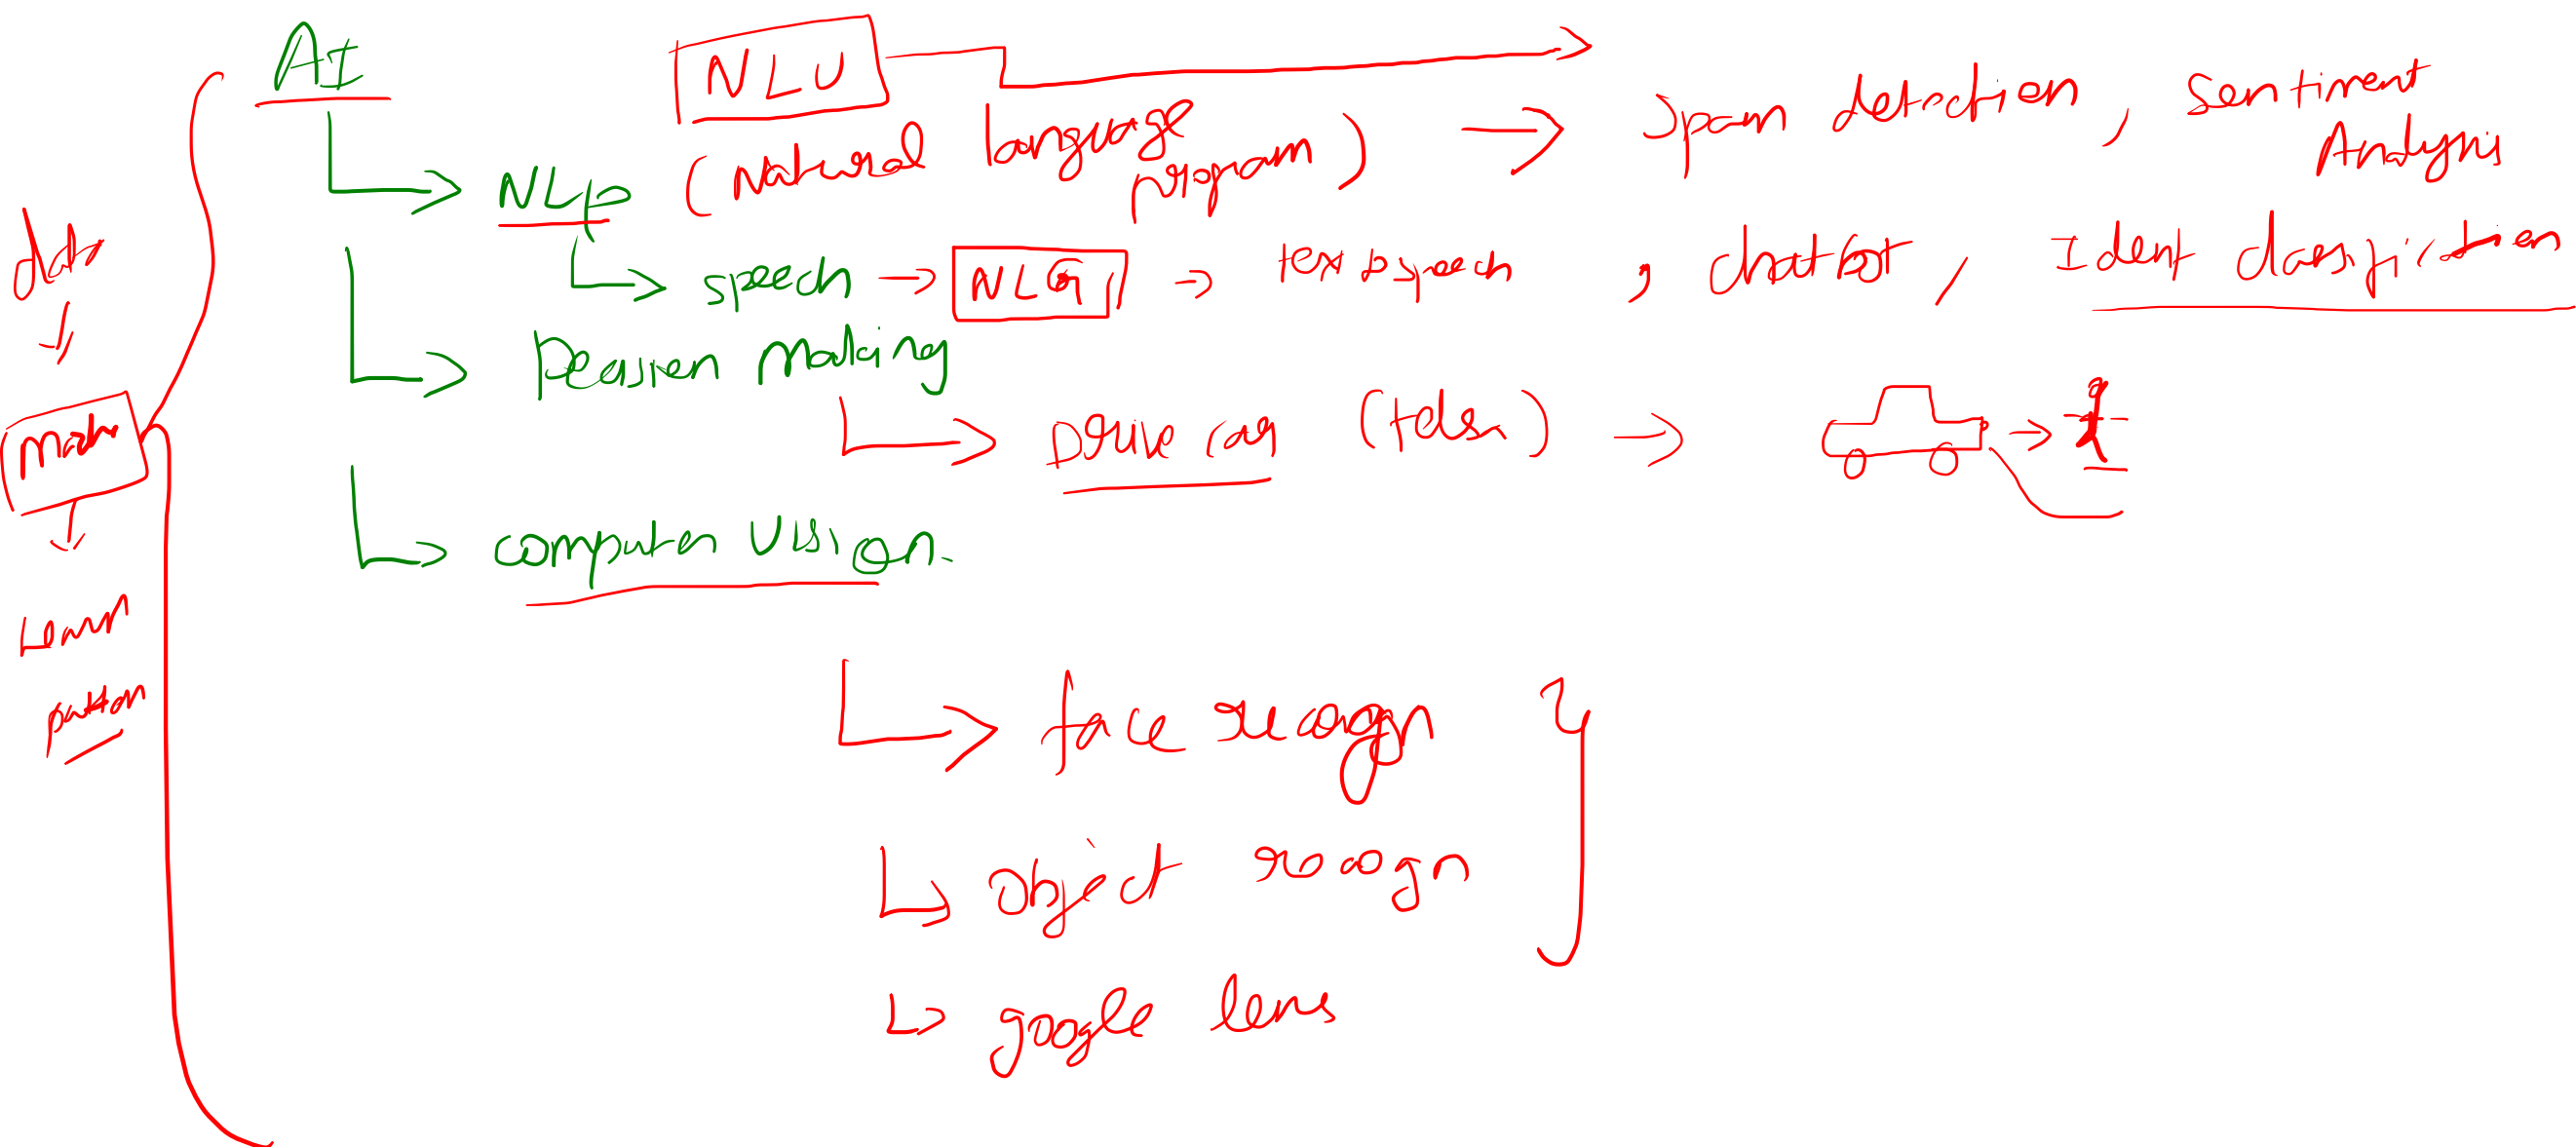 AI
NLU
(Natural language program) → Spam detection, Sentiment Analysis
NLP
speech → NLG → text to speech, chatbot, Ident classification
Decision Making
Drive car (tesla) →
computer vision.
face recogn
object recogn
google lens
data
math
learn
pattern